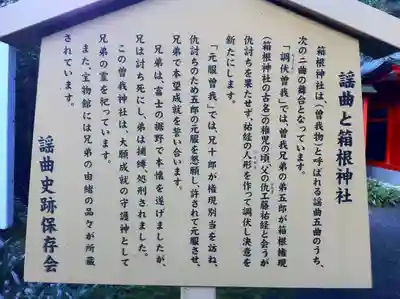 謡曲と箱根神社
箱根神社は、(曽我物)と呼ばれる謡曲五曲のうち、
次の二曲の舞台となっています。
「調伏曽我」では、曽我兄弟の弟五郎が箱根権現
(箱根神社の古名)の稚児の頃、父の仇工藤祐経と会うが
仇討ちを果たせず、祐経の人形を作って調伏し決意を
新たにします。
「元服曽我」では、兄十郎が権現別当を訪ね、
仇討ちのため五郎の元服を懇願し、許されて元服させ、
兄弟で本望成就を誓い合います。
兄弟は、富士の裾野で本懐を遂げましたが、
兄は討ち死にし、弟は捕縛、処刑されました。
この曽我神社は、大願成就の守護神として
兄弟の霊を祀っています。
また、宝物館には兄弟の由緒の品々が所蔵
されています。
謡曲史跡保存会